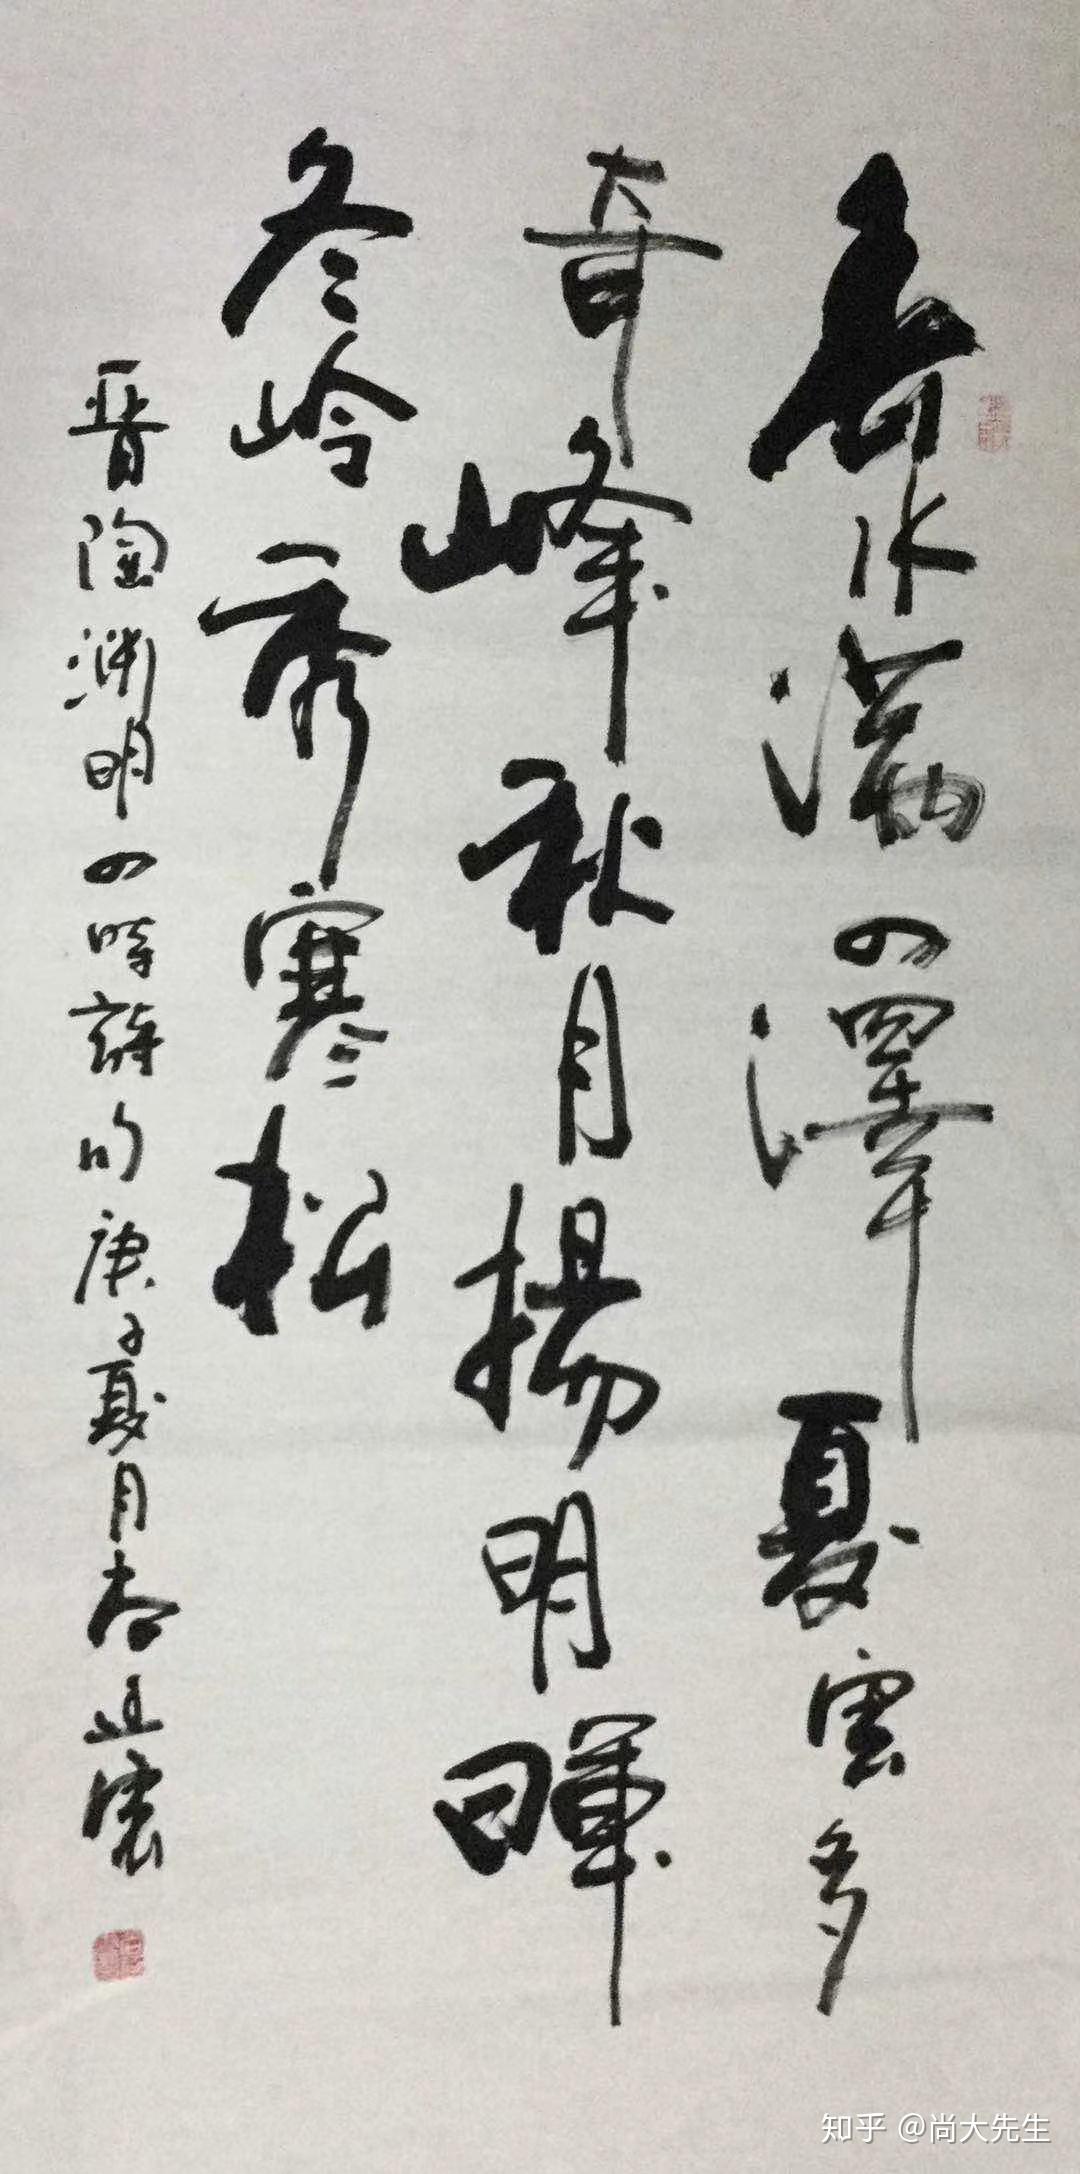 春水滿四澤夏雲多
奇峰秋月揚明暉
冬嶺秀寒松
晋陶淵明四時詩句庚子夏月
知乎 @尚大先生